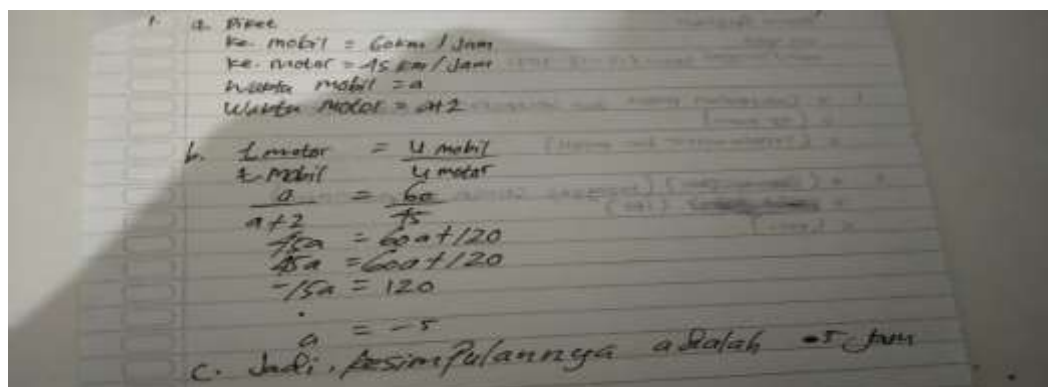 1. a. Diket
Ke. mobil = 60km / Jam
Ke. motor = 45 km / Jam
waktu mobil = a
waktu motor = a+2
b. t motor = v mobil
t mobil v motor
a = 60
a+2 45
45a = 60a+120
45a = 60a+120
-15a = 120
a = -5
c. Jadi, kesimpulannya adalah -5 Jam